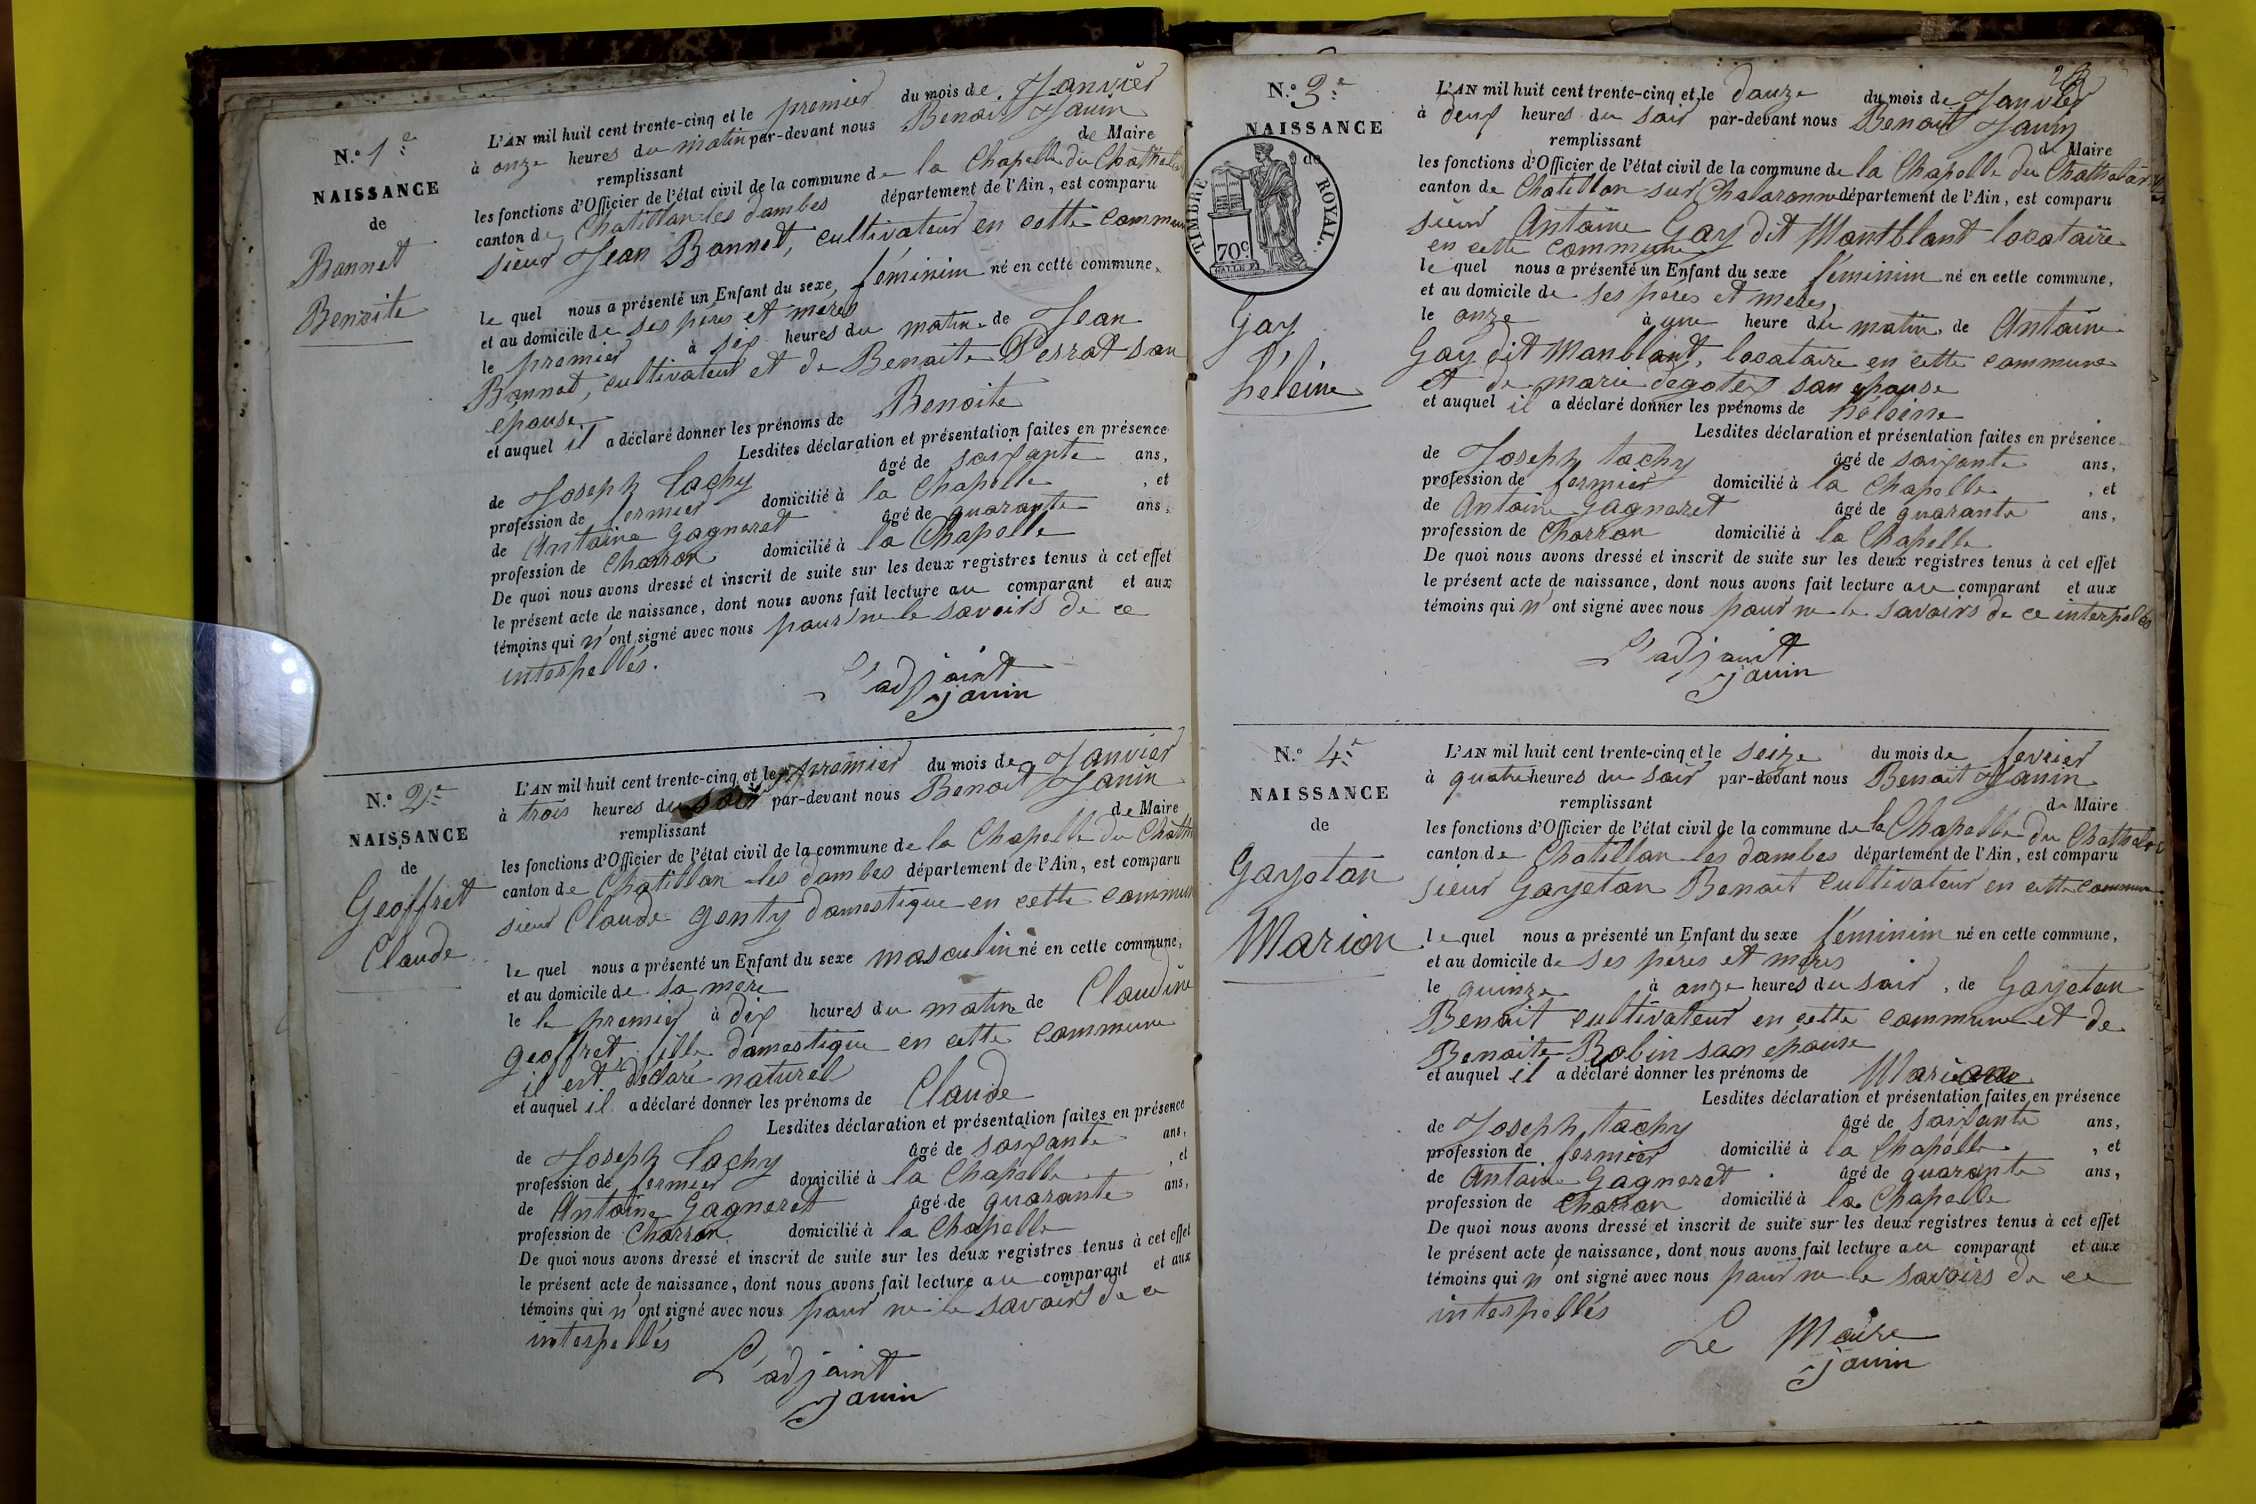 N.º 1.e
NAISSANCE
de
Bonnet
Benoite
L'AN mil huit cent trente-cinq et le premier du mois de Janvier
à onze heures du matin par-devant nous Benoit Janin
remplissant de Maire
les fonctions d'Officier de l'état civil de la commune de la Chapelle du Chathelar
canton de Chatillon les dombes département de l'Ain, est comparu
sieur Jean Bonnet, cultivateur en cette commune
le quel nous a présenté un Enfant du sexe féminim né en cette commune,
et au domicile de ses péres et méres
le premier à six heures du matin de Jean
Bonnet, cultivateur et de Benoite Perrat son
épouse
et auquel il a déclaré donner les prénoms de Benoite
Lesdites déclaration et présentation faites en présence
de Joseph tachy âgé de soixante ans,
profession de fermier domicilié à la Chapelle , et
de Antoine Gagneret âgé de quarante ans,
profession de Charron domicilié à la Chapelle
De quoi nous avons dressé et inscrit de suite sur les deux registres tenus à cet effet
le présent acte de naissance, dont nous avons fait lecture au comparant et aux
témoins qui n'ont signé avec nous pour ne le savoirs de ce
interpellés.
L'adjoint
Janin
N.º 2.e
NAISSANCE
de
Geoffret
Claude
L'AN mil huit cent trente-cinq et le premier du mois de Janvier
à trois heures du soir par-devant nous Benoit Janin
remplissant de Maire
les fonctions d'Officier de l'état civil de la commune de la Chapelle du Chath
canton de Chatillon les dombes département de l'Ain, est comparu
sieur Claude genty domestique en cette commun
le quel nous a présenté un Enfant du sexe masculin né en cette commune,
et au domicile de sa mère
le le premier à dix heures du matin de Claudine
geoffret, fille domestique en cette commune
il est déclaré naturel
et auquel il a déclaré donner les prénoms de Claude
Lesdites déclaration et présentation faites en présence
de Joseph tachy âgé de soixante ans,
profession de fermier domicilié à la Chapelle , et
de Antoine Gagneret âgé de quarante ans,
profession de Charron domicilié à la Chapelle
De quoi nous avons dressé et inscrit de suite sur les deux registres tenus à cet effet
le présent acte de naissance, dont nous avons fait lecture au comparant et aux
témoins qui n'ont signé avec nous pour ne le savoirs de ce
interpellés
L'adjoint
Janin
N.º 3.e
NAISSANCE
de
TIMBRE ROYAL.
70c.
Gay
héleine
L'AN mil huit cent trente-cinq et le douze du mois de Janvier
à deux heures du soir par-devant nous Benoit Janin
remplissant de Maire
les fonctions d'Officier de l'état civil de la commune de la Chapelle du Chathelar
canton de Chatillon sur Chalaronne département de l'Ain, est comparu
sieur Antoine Gay dit Montblant locataire
en cette commune
le quel nous a présenté un Enfant du sexe féminim né en cette commune,
et au domicile de ses péres et meres,
le onze à une heure du matin de Antoine
Gay dit Monblant, locataire en cette commune
et de marie degotex son epouse
et auquel il a déclaré donner les prénoms de heleine
Lesdites déclaration et présentation faites en présence
de Joseph tachy âgé de soixante ans,
profession de fermier domicilié à la Chapelle , et
de Antoine gagneret âgé de quarante ans,
profession de Charron domicilié à la Chapelle
De quoi nous avons dressé et inscrit de suite sur les deux registres tenus à cet effet
le présent acte de naissance, dont nous avons fait lecture au comparant et aux
témoins qui n'ont signé avec nous pour ne le savoirs de ce interpellés
L'adjoint
Janin
N.º 4.e
NAISSANCE
de
Gayetan
Marion
L'AN mil huit cent trente-cinq et le seize du mois de fevrier
à quatre heures du soir par-devant nous Benoit Janin
remplissant de Maire
les fonctions d'Officier de l'état civil de la commune de la Chapelle du Chathelar
canton de Chatillon les dombes département de l'Ain, est comparu
sieur Gayetan Benoit cultivateur en cette commune
le quel nous a présenté un Enfant du sexe féminim né en cette commune,
et au domicile de ses péres et méres
le quinze à onze heures du soir, de Gayetan
Benoit cultivateur en cette commune et de
Benoite Robin son epouse
et auquel il a déclaré donner les prénoms de Marion
Lesdites déclaration et présentation faites en présence
de Joseph tachy âgé de soixante ans,
profession de fermier domicilié à la Chapelle , et
de Antoine Gagneret âgé de quarante ans,
profession de Charron domicilié à la Chapelle
De quoi nous avons dressé et inscrit de suite sur les deux registres tenus à cet effet
le présent acte de naissance, dont nous avons fait lecture au comparant et aux
témoins qui n'ont signé avec nous pour ne le savoirs de ce
interpellés
Le Maire
Janin